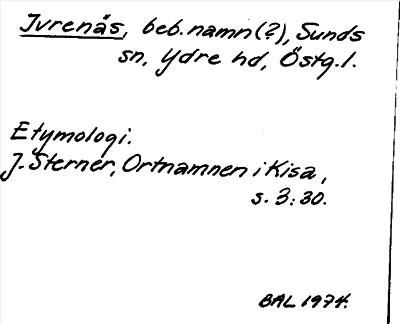 Ivrenäs, beb.namn(?), Sunds
sn, Ydre hd, Östg.l.
Etymologi.
J. Sterner, Ortnamnen i Kisa,
s. 3:30.
BAL 1974.